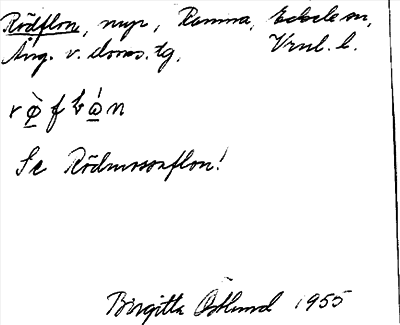 Rödflon, myr, Ramna, Eckele sn,
Ång. v. doms. tg, Vrml. l.
rø̀fbώn
Se Rödmossaflon!
Birgitta Östlund 1955